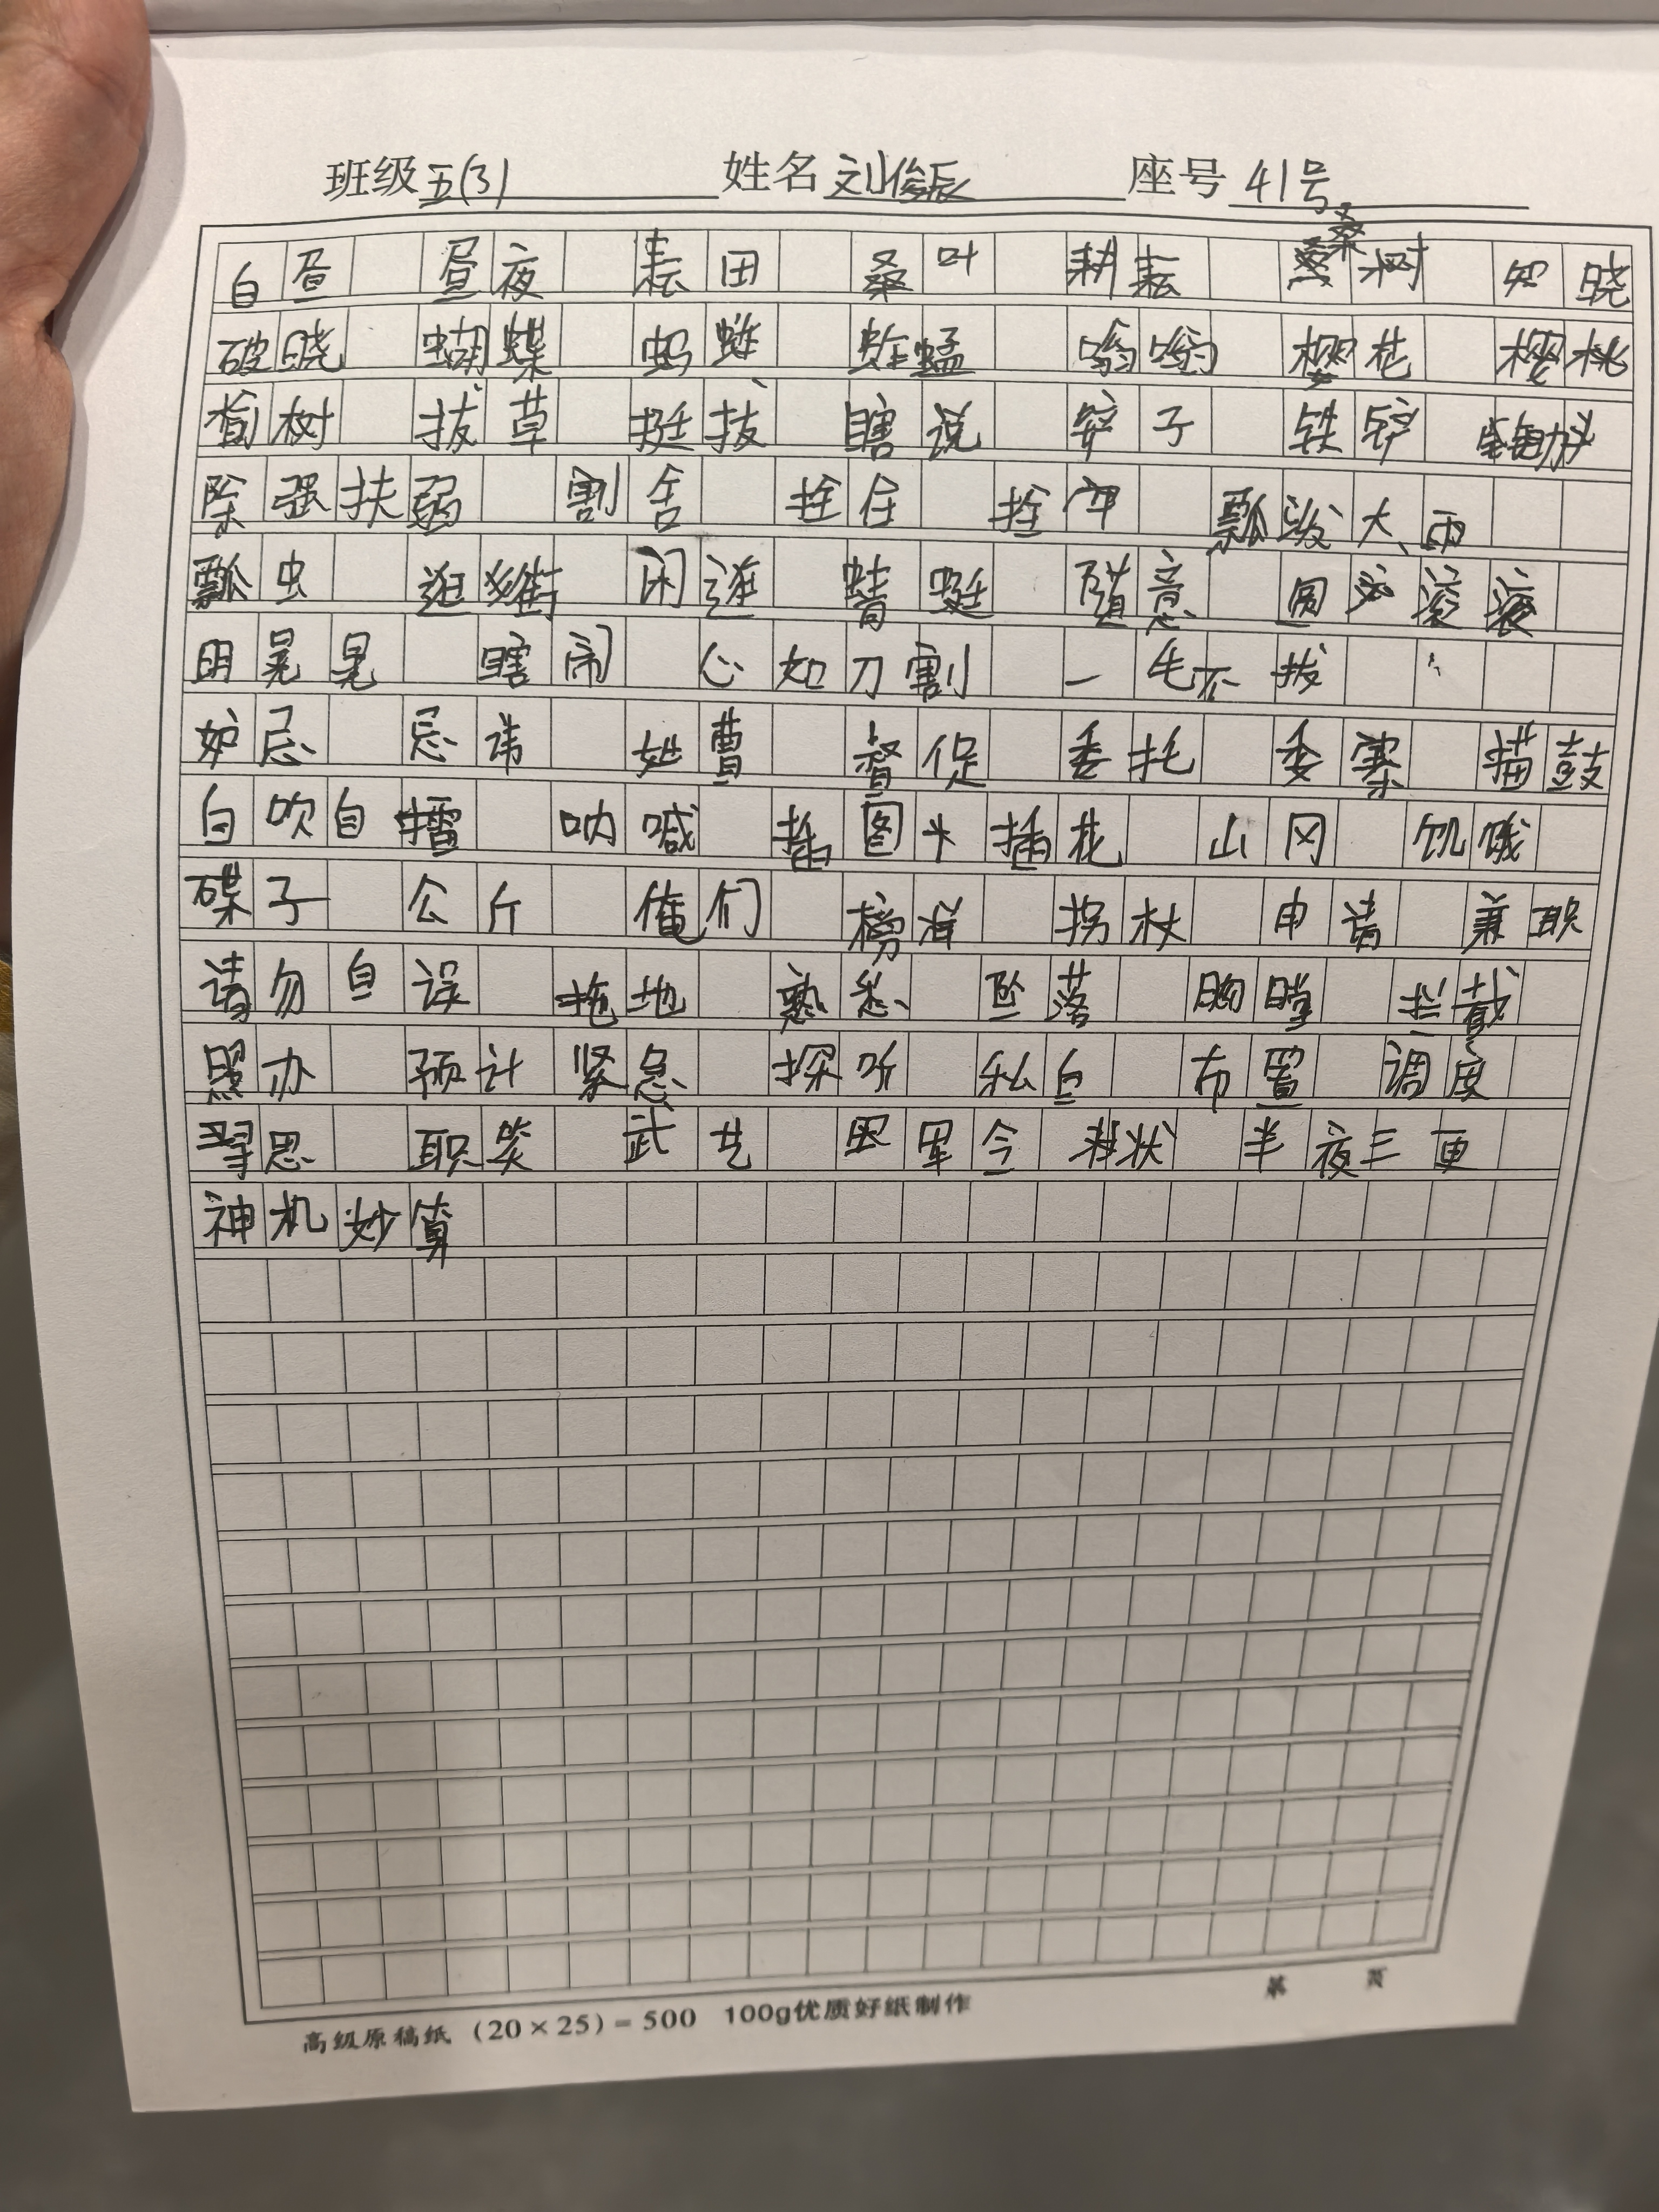 班级 五(3) 姓名 刘俊辰 座号 41号
白昼 昼夜 耘田 桑叶 耕耘 桑树 知晓
破晓 蝴蝶 蚂蚱 蚱蜢 嗡嗡 樱花 樱桃
榆树 拔草 挺拔 瞎说 铲子 铁铲
除强扶弱 割舍 拴住 拴牢 瓢泼大雨
瓢虫 逛街 闲逛 蜻蜓 随意 圆滚滚
明晃晃 瞎闹 心如刀割 一毛不拔
妒忌 忌讳 姓曹 督促 委托 擂鼓
自吹自擂 呐喊 插图 插花 山冈 饥饿
碟子 公斤 俺们 榜样 拐杖 申请 兼职
请勿自误 拖地 熟悉 坠落 胸膛 拦截
照办 预计 紧急 探听 私自 布置 调度
寻思 武艺 军令状 半夜三更
神机妙算
高级原稿纸 (20×25)=500 100g优质好纸制作 第 页